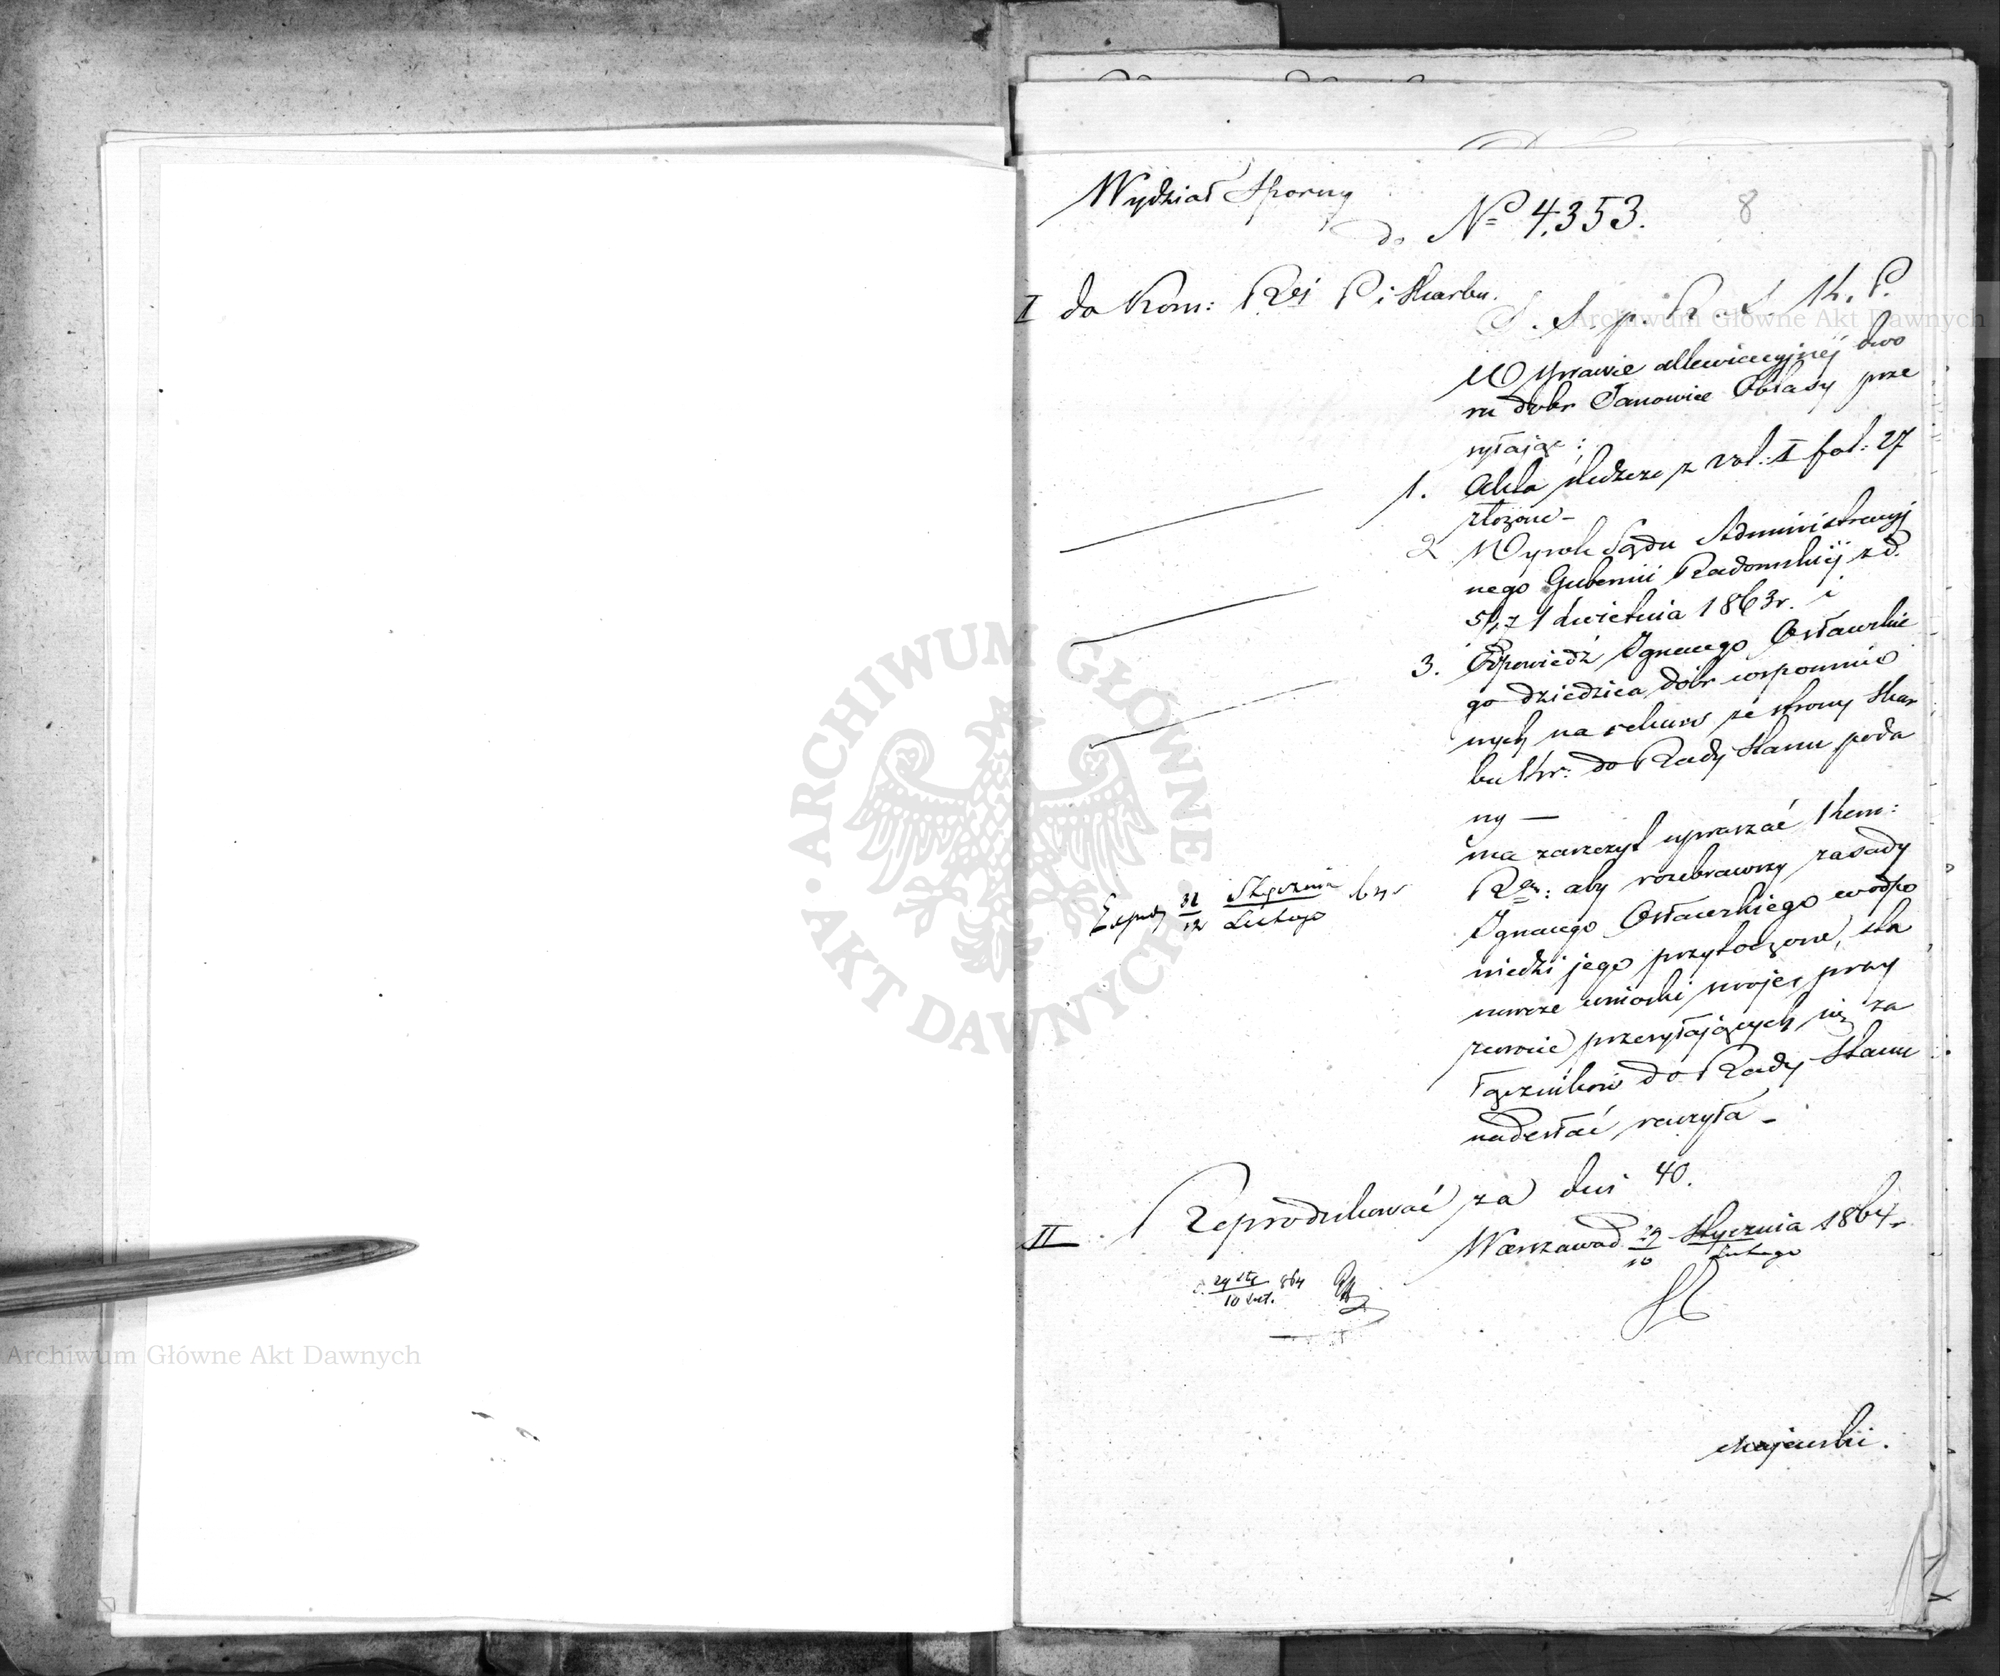 Wydział Sporny
do № 4,353.
8
I do Kom: R.ej P i Skarbu.
S. S. p. R. S. K. P.
W sprawie allewiacyjnej dwo
ru dobr Janowice Oblasy prze
syłając:
1. Akta śledcze z vol: I fol: 27
złożone –
2. Wyrok Sądu Administracyj
nego Gubernii Radomskiej z d.
5/17 kwietnia 1863 r. i
3. Odpowiedź Ignacego Ostawskie
go dziedzica dóbr wspomnio
nych na rekurs ze strony Skar
bu Kr: do Rady Stanu poda
ny —
ma zaszczyt upraszać Kom:
R: aby rozebrawszy zasady
Ignacego Ostawskiego w odpo
wiedzi jego przytoczone, sta
nowcze wnioski swoje, przy
zwrocie przesyłających się za
łączników do Rady Stanu
nadesłać raczyła –
31/12 Stycznia/Lutego
II Reprodukować za dni 40.
Warszawa d 29/10 Stycznia/Lutego 1864 r.
29 Sty/10 Lut. 864
Majewski.
ARCHIWUM GŁÓWNE AKT DAWNYCH
Archiwum Główne Akt Dawnych
Archiwum Główne Akt Dawnych